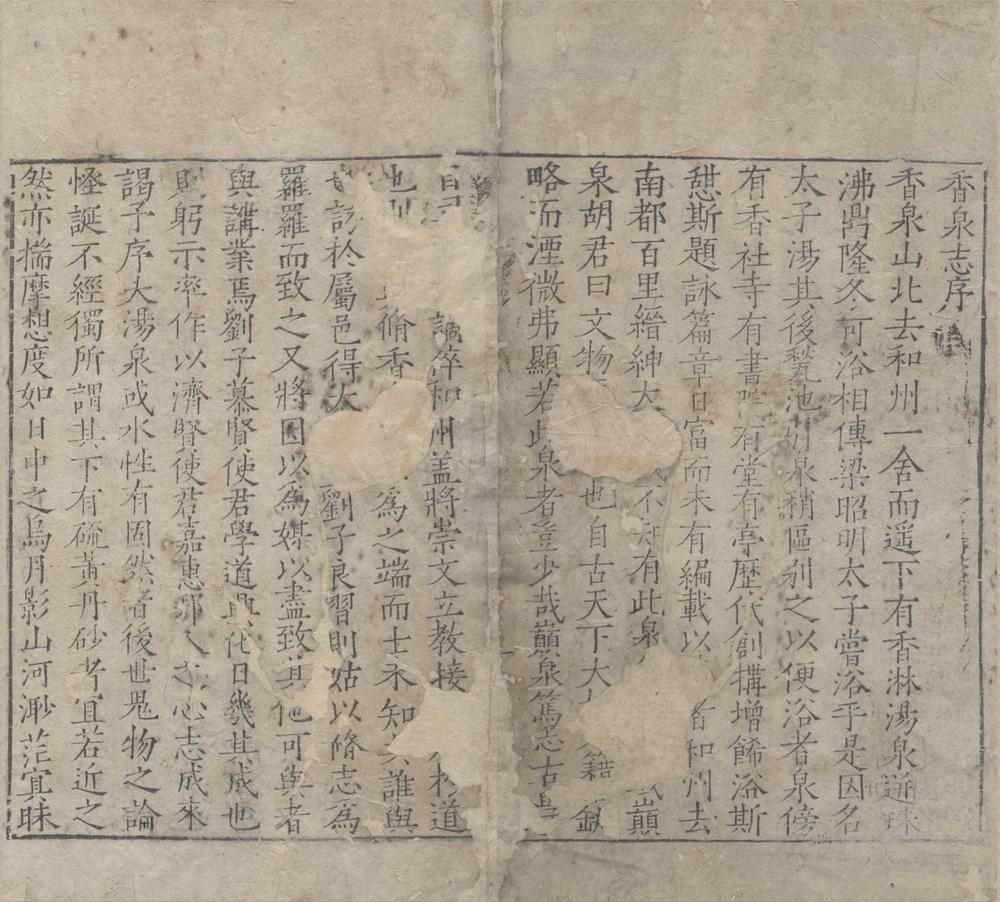 香泉志序
香泉山北去和州一舍而遥下有香淋湯泉迸珠
沸鼎隆冬可浴相傳梁昭明太子嘗浴乎是因名
太子湯其後甃池引泉稍區别之以便浴者泉傍
有香社寺有書院有堂有亭歷代創搆增餙浴斯
憇斯題詠篇章日富而未有編載以 州去
南都百里縉紳大 不知有此泉 巔
泉胡君曰文物 也自古天下大 籍
略而湮微弗顯若此泉者豈少哉巔泉篤志古
誠倅和州盖將崇文立教接 道
也 脩香 爲之端而士未知 誰與
訪於屬邑得太 劉子良習則姑以脩志爲
羅羅而致之又將因以爲媒以盡致其他可與者
與講業焉劉子慕賢使君學道典化日幾其成也
則躬示率作以濟賢使君嘉惠 人之心志成來
謁予序大湯泉或水性有固然者後世鬼物之論
怪誕不經獨所謂其下有硫黄丹砂考宜若近之
然亦揣摩想度如日中之烏月影山河渺茫冥昧